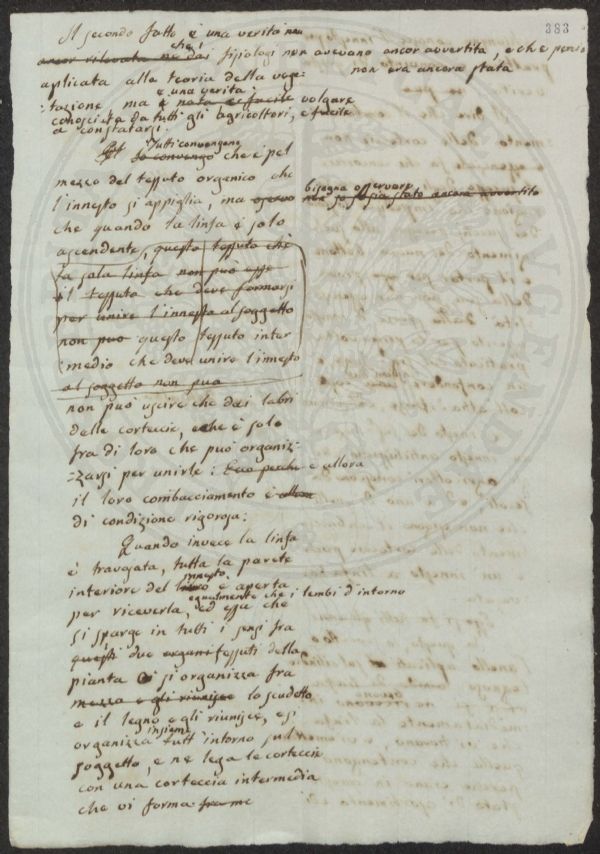 383
Il secondo fatto è una verità non
ancor rilevata ne dai che i fisiologi non avevano ancor avvertita, e che perciò
non era ancora stata
aplicata alla teoria della vege-
è una verità
:tazione ma è nota e facile volgare
conosciuta da tutti gli agricoltori, e facile
a constatarsi.
Tutti convengono
Io convengo che è pel
mezzo del tessuto organico che
l'innesto si appiglia, ma osservo bisogna osservare
che quando la linfa è solo
ascendente, questo tessuto che
la sola linfa non può
il tessuto che deve formarsi
per unire l'innesto al soggetto
non può questo tessuto inter
:medio che deve unire l'innesto
al soggetto non può
non può uscire che dai labri
delle corteccie, e che è solo
fra di loro che può organiz-
:zarsi per unirle: e allora
il loro combacciamento è allora
di condizione rigorosa:
Quando invece la linfa
è travasata, tutta la parete
innesto
interiore del libro è aperta
egualmente che i lembi d'intorno
per riceverla, ed essa che
si sparge in tutti i sensi fra
questi due organi tessuti della
pianta si organizza fra
mezzo e gli riunisce lo scudetto
e il legno e gli riunisce, e si
insieme
organizza tutt'intorno sul
soggetto, e ne lega le corteccie
con una corteccia intermedia
che vi forma